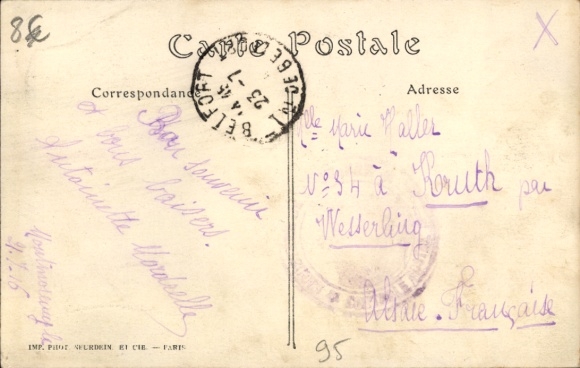 86
Carte Postale
X
Correspondance
Adresse
BELFORT
14 45
23-7
Bon souvenir
et bons baisers.
Antoinette
4-7-16
Mlle Marie Haller
N° 34 à Kruth par
Wesserling
Alsace-Française
IMP. PHOT. NEURDEIN. ET CIE. — PARIS
95